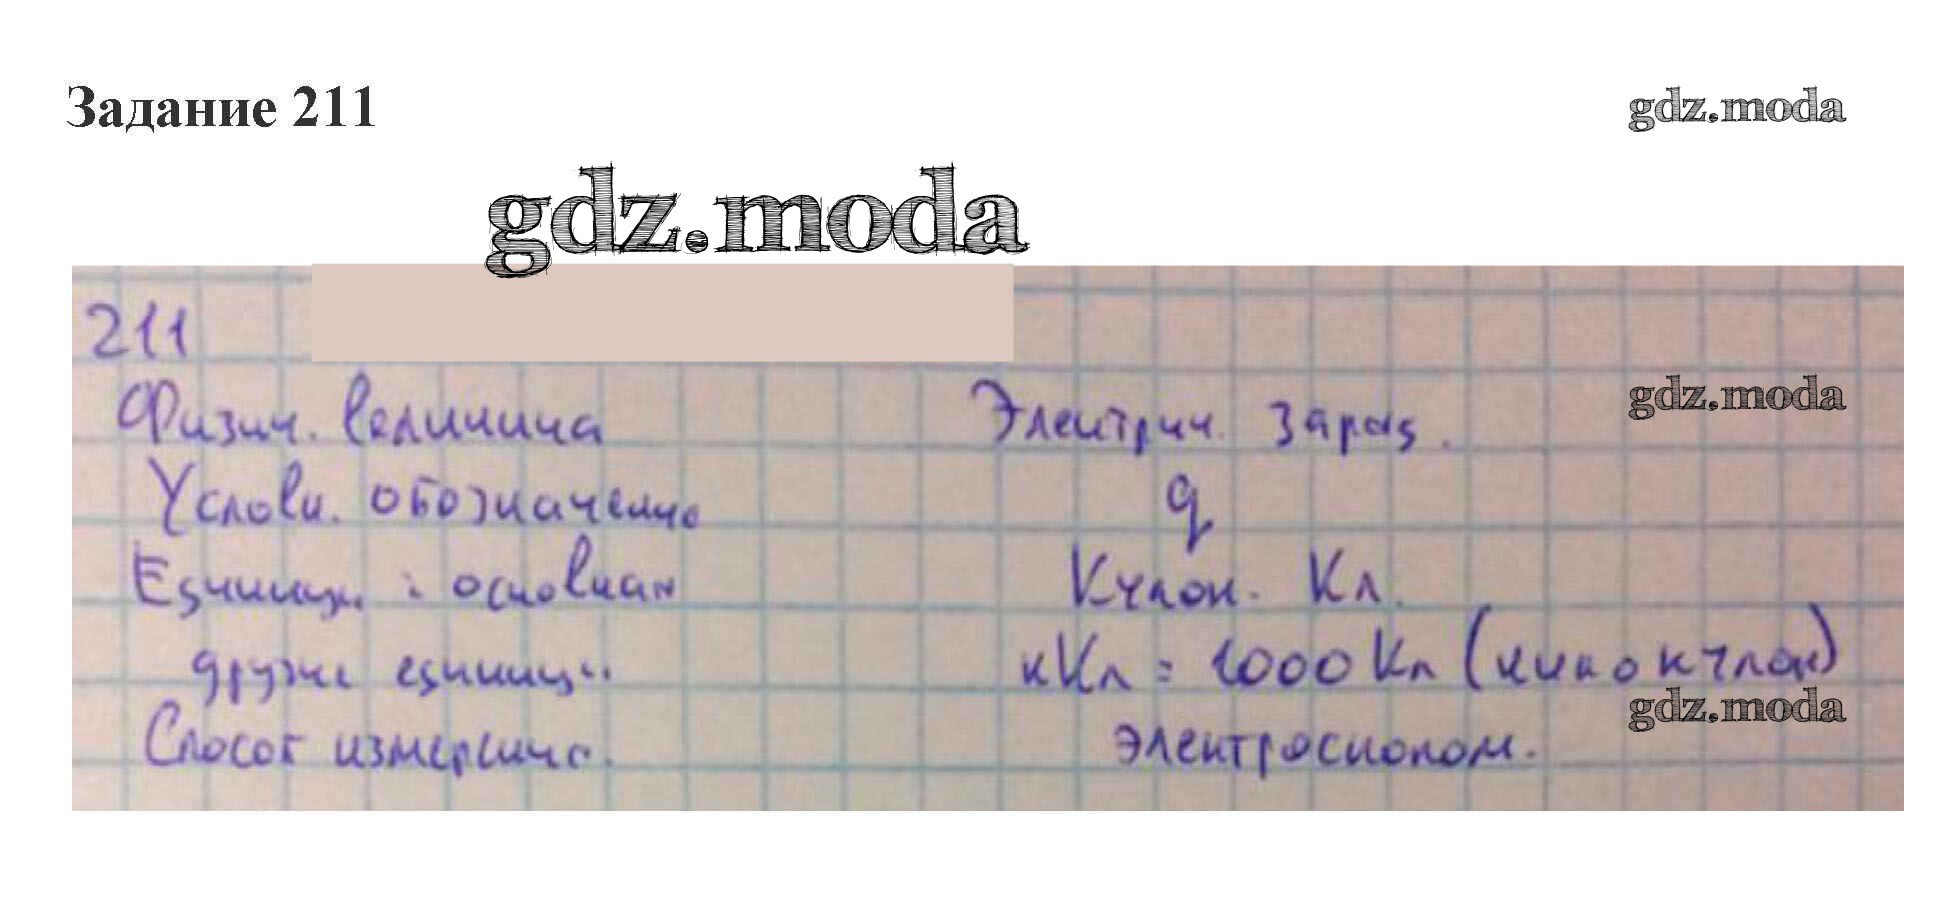 Задание 211
gdz.moda
gdz.moda
211
Физич. величина Электрич. заряд.
gdz.moda
Условн. обозначение q
Единицы: основная Кулон. Кл.
другие единицы кКл = 1000 Кл (килокулон)
gdz.moda
Способ измерения. электроскопом.